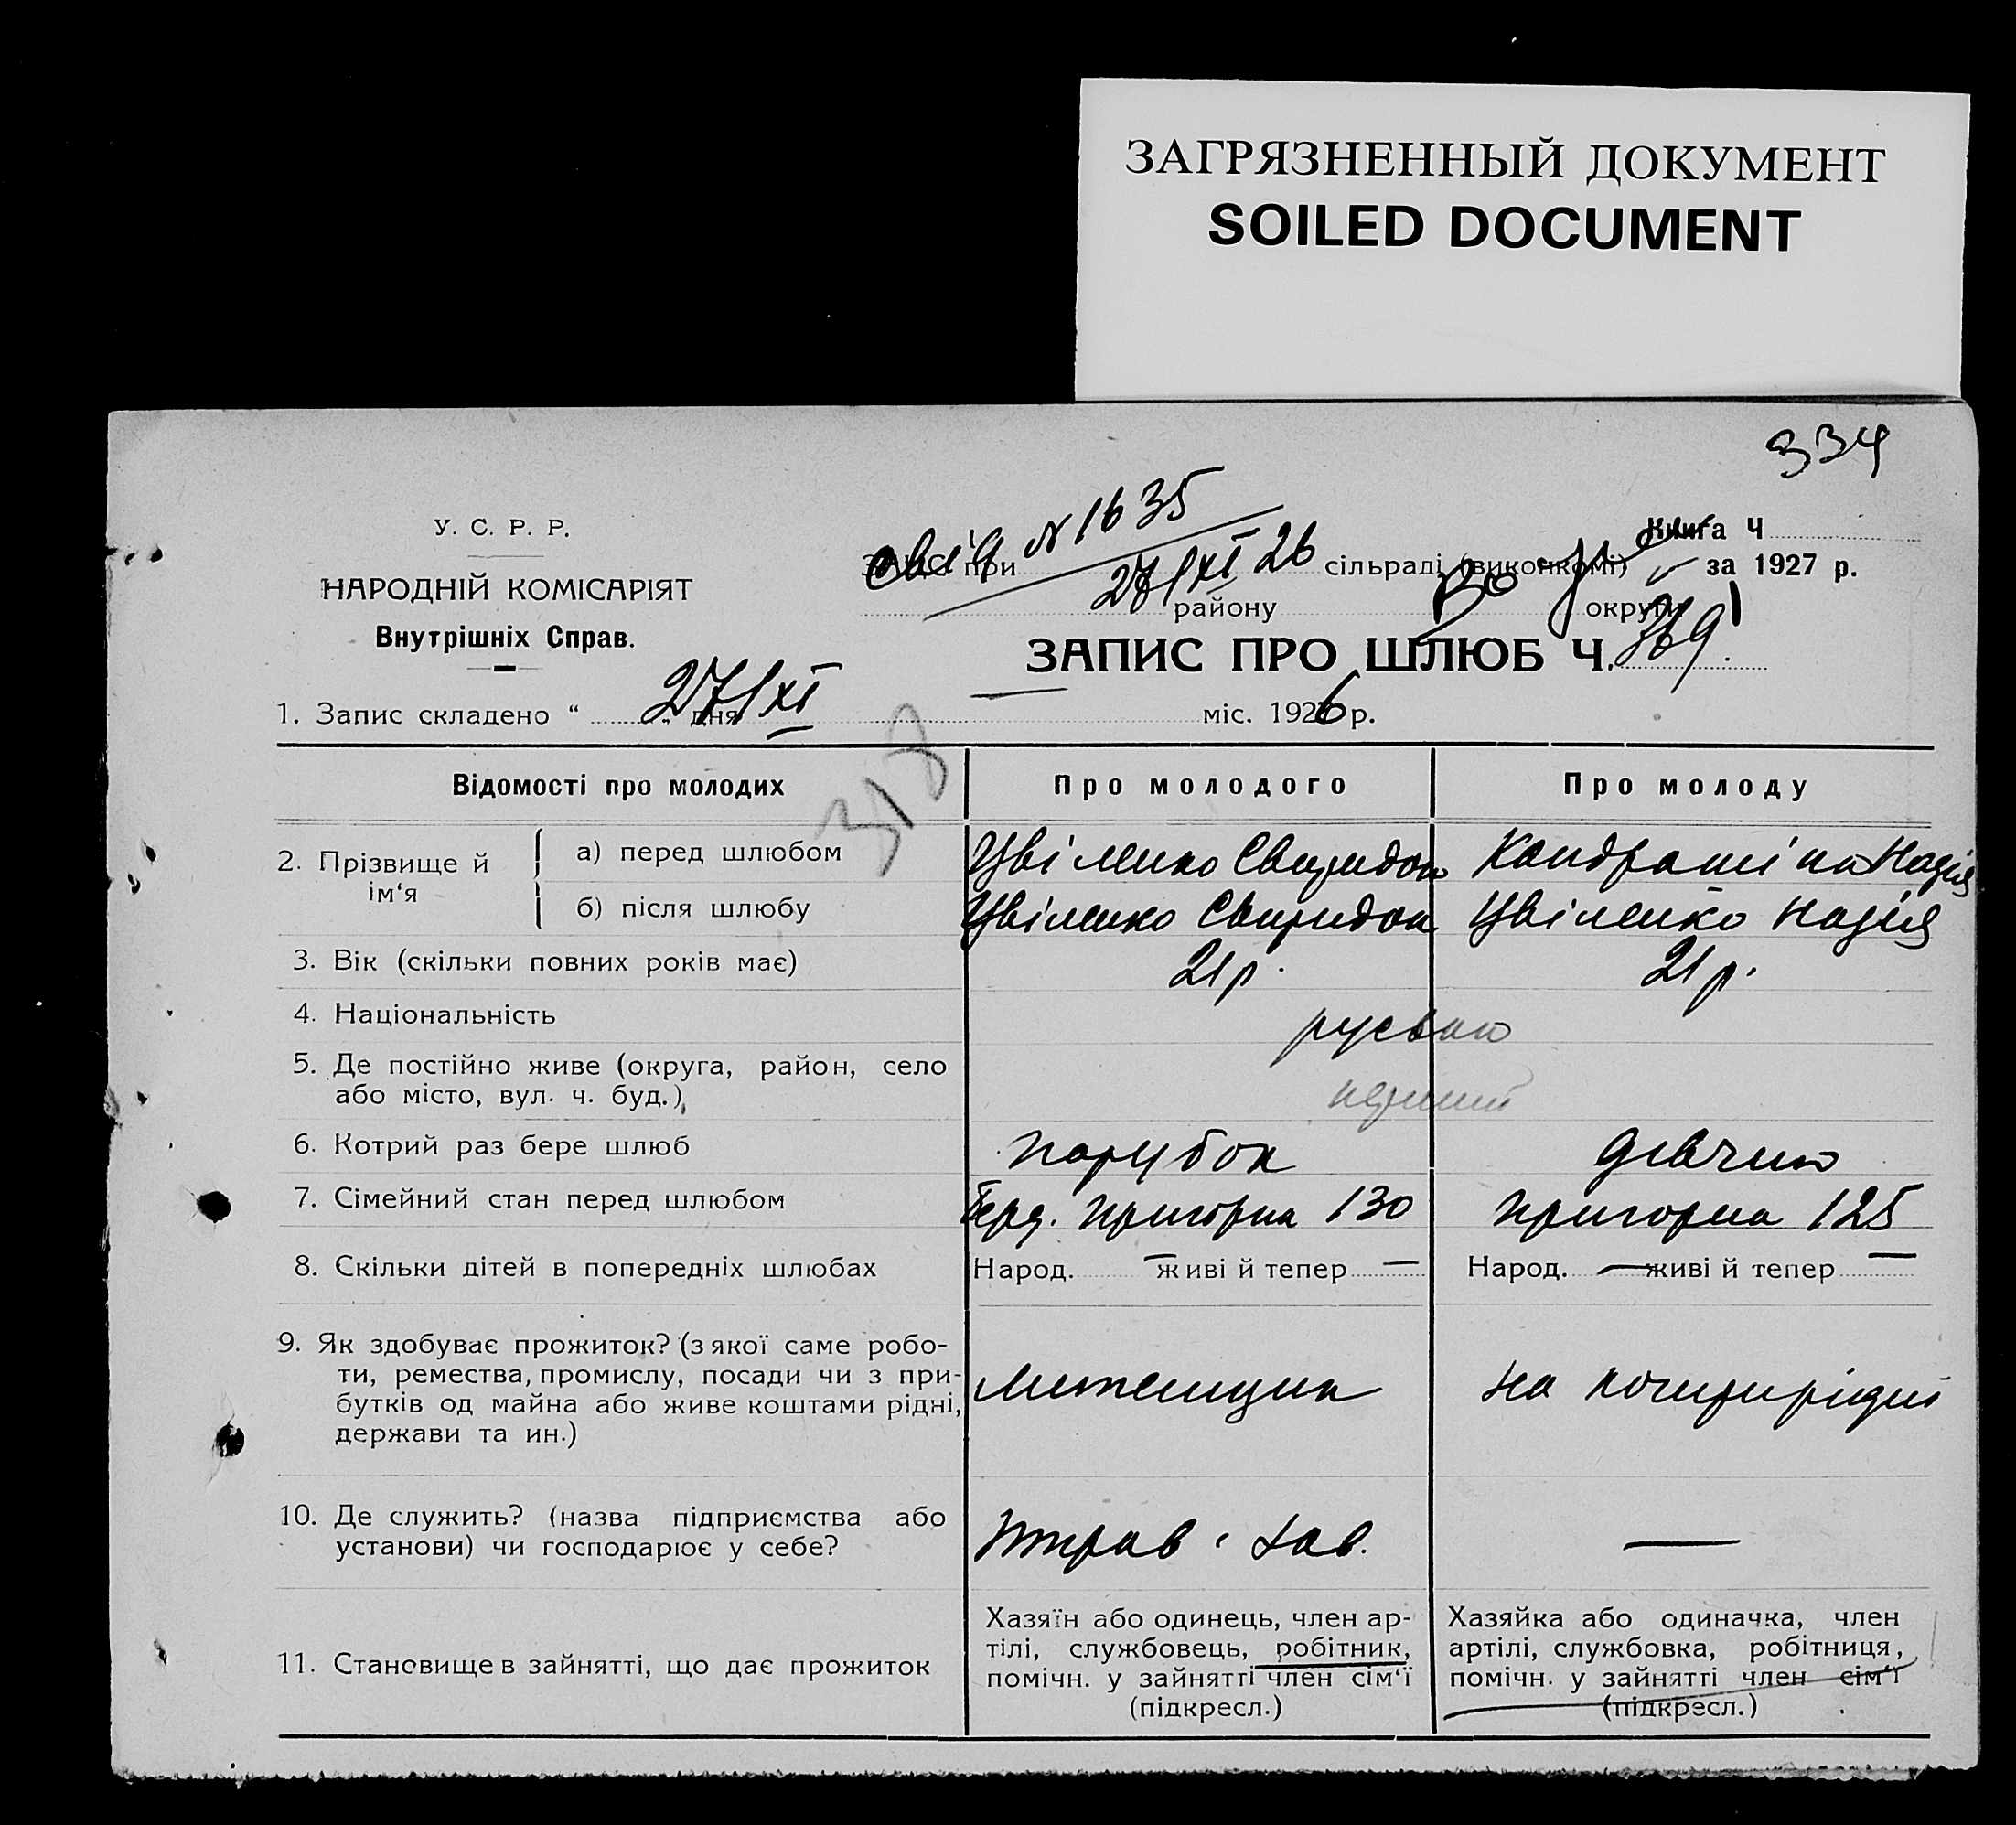 ЗАГРЯЗНЕННЫЙ ДОКУМЕНТ
SOILED DOCUMENT
334
У. С. Р. Р.
НАРОДНІЙ КОМІСАРІЯТ
Внутрішніх Справ.
Книга Ч
свід N 1635
при 27/XI 26 сільраді (виконкомі) за 1927 р.
району округи
ЗАПИС ПРО ШЛЮБ Ч. 369
1. Запис складено “ 27/XI „ дня міс. 1926 р.
318
Відомості про молодих Про молодого Про молоду
2. Прізвище й ім‘я
а) перед шлюбом Цвіленко Свиридон Надія
б) після шлюбу Цвіленко Свиридон Цвіленко Надія
3. Вік (скільки повних років має) 21 р. 21 р.
4. Національність
5. Де постійно живе (округа, район, село
або місто, вул. ч. буд.)
6. Котрий раз бере шлюб парубок дівчина
7. Сімейний стан перед шлюбом 130 125
8. Скільки дітей в попередніх шлюбах Народ. — живі й тепер — Народ. — живі й тепер —
9. Як здобуває прожиток? (з якої саме робо-
ти, ремества, промислу, посади чи з при-
бутків од майна або живе коштами рідні,
держави та ин.)
на
10. Де служить? (назва підприємства або
установи) чи господарює у себе?
зав. —
11. Становище в зайнятті, що дає прожиток
Хазяїн або одинець, член ар-
тілі, службовець, робітник,
помічн. у зайнятті член сім‘ї
(підкресл.)
Хазяйка або одиначка, член
артілі, службовка, робітниця,
помічн. у зайнятті член сім‘ї
(підкресл.)